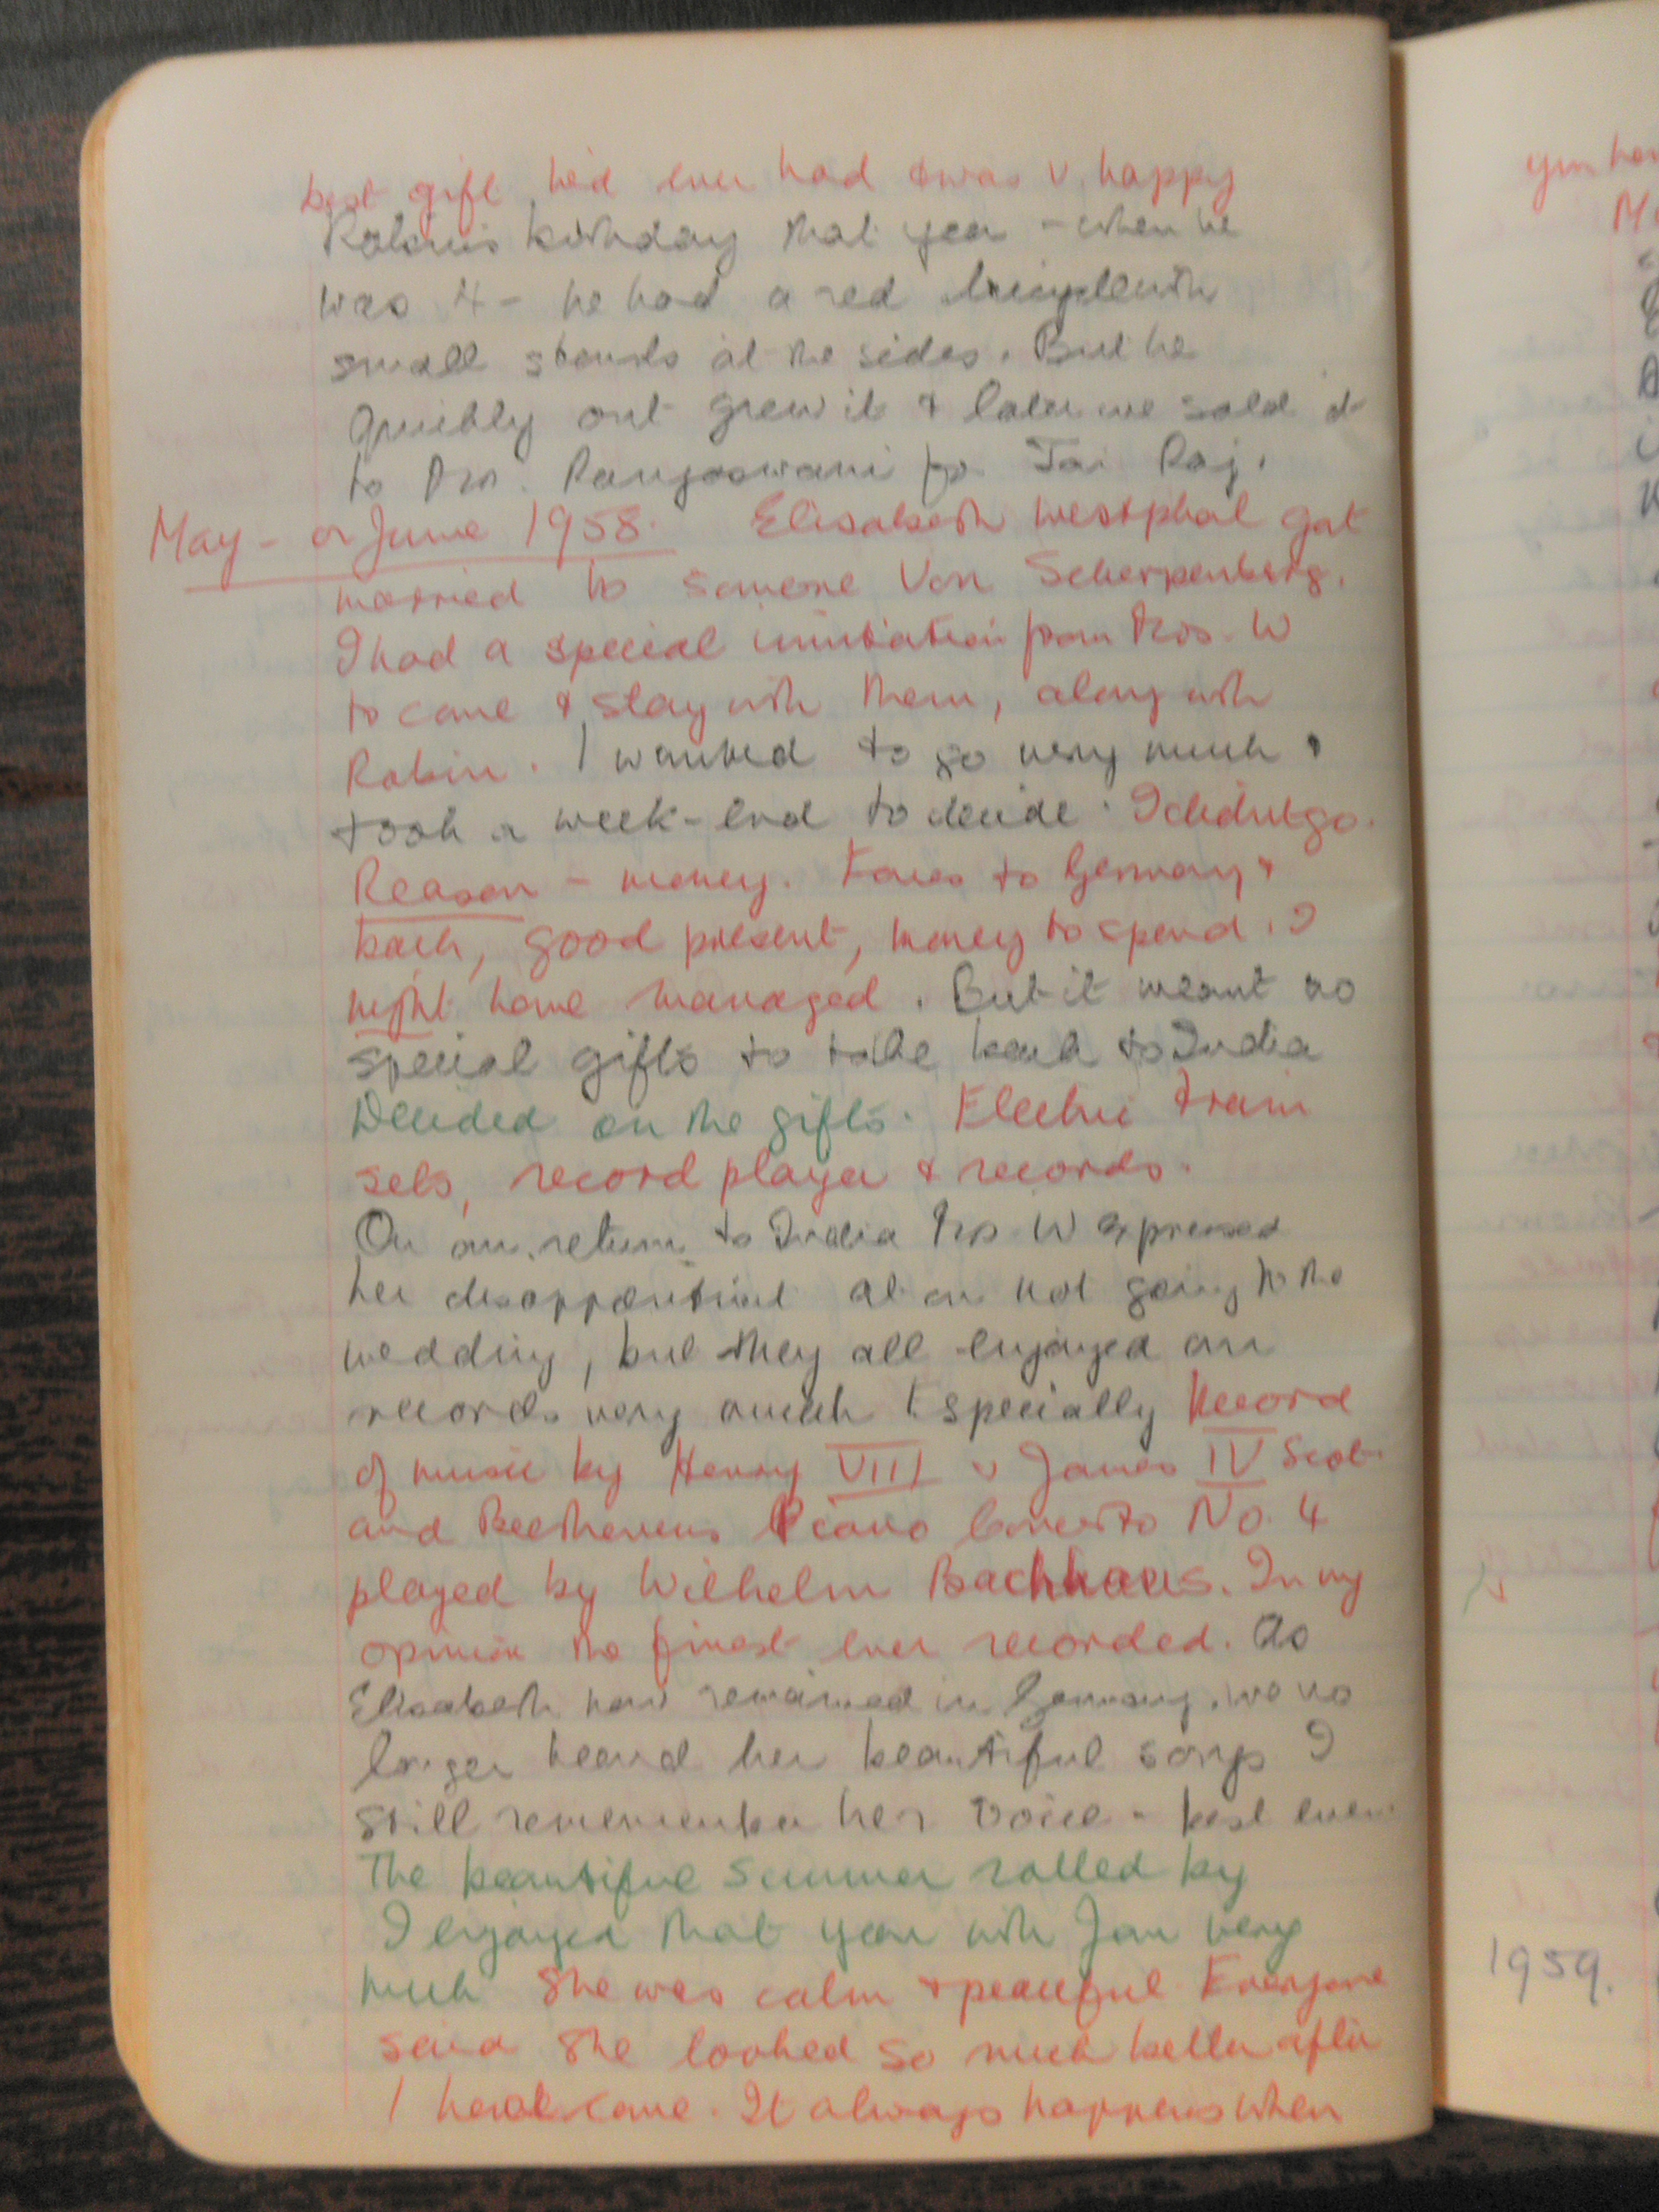 best gift he'd ever had & was v. happy
Robin's birthday that year - when he
was 4 - he had a red bicycle with
small stands at the sides. But he
quickly out grew it & later we sold it
to Mrs. Rangaswami for Jai Raj.
May - or June 1958. Elisabeth Westphal got
married to someone Von Scherpenberg.
I had a special invitation from Mrs. W
to come & stay with them, along with
Robin. I wanted to go very much &
took a week-end to decide. I didn't go.
Reason - money. Fares to Germany &
back, good present, money to spend. I
might have managed. But it meant no
special gifts to take back to India
Decided on the gifts. Electric train
sets, record player & records.
On our return to India Mrs. W expressed
her disappointment at our not going to the
wedding, but they all enjoyed our
records very much Especially Record
of music by Henry VIII v James IV Scot.
and Beethovens Piano Concerto No. 4
played by Wilhelm Bachhaus. In my
opinion the finest ever recorded. As
Elisabeth now remained in Germany, we no
longer heard her beautiful songs I
still remember her voice - best ever.
The beautiful Summer rolled by
I enjoyed that year with Jan very
much She was calm & peaceful Everyone
said She looked so much better after
I had come. It always happens when
1959.